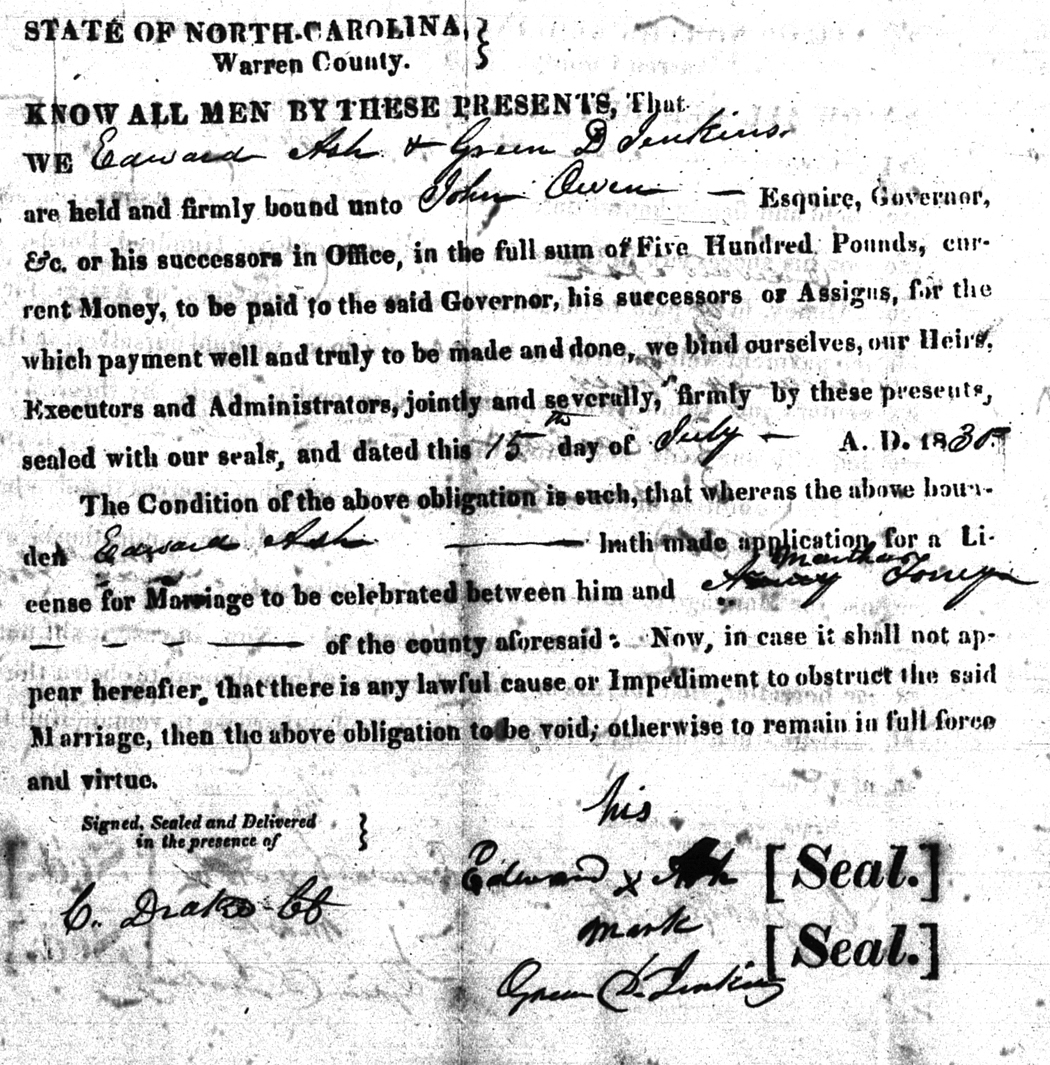 STATE OF NORTH-CAROLINA,
Warren County.
KNOW ALL MEN BY THESE PRESENTS, That
WE Edward Ash & Green D Jenkins.
are held and firmly bound unto John Owen — Esquire, Governor,
&c. or his successors in Office, in the full sum of Five Hundred Pounds, cur-
rent Money, to be paid to the said Governor, his successors or Assigns, for the
which payment well and truly to be made and done, we bind ourselves, our Heirs,
Executors and Administrators, jointly and severally, firmly by these presents,
sealed with our seals, and dated this 15th day of July — A. D. 1830
The Condition of the above obligation is such, that whereas the above boun-
den Edward Ash — hath made application for a Li-
Martha
cense for Marriage to be celebrated between him and
— — — — of the county aforesaid: Now, in case it shall not ap-
pear hereafter, that there is any lawful cause or Impediment to obstruct the said
Marriage, then the above obligation to be void; otherwise to remain in full force
and virtue.
Signed, Sealed and Delivered
in the presence of
his
Edward x Ash [Seal.]
C. Drake
mark
[Seal.]
Green D. Jenkins